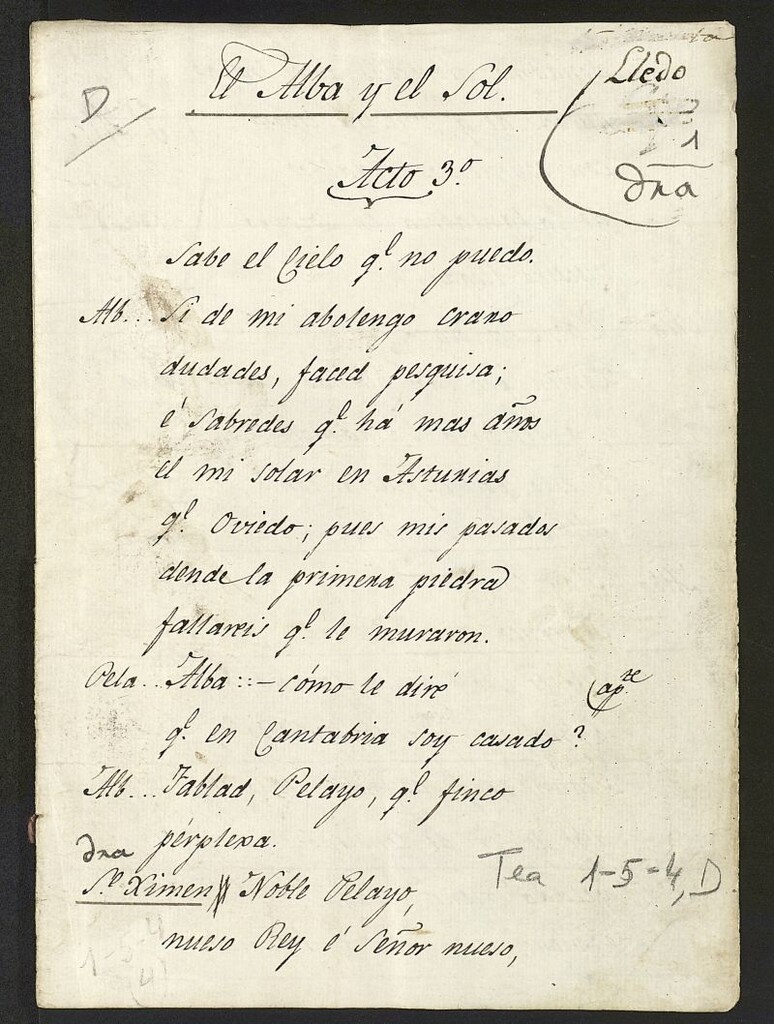 Lledo
D
El Alba y el Sol.
1
Acto 3º
dra
Sabe el Cielo qᵉ no puedo.
Alb... Si de mi abolengo crano
dudades, faced pesquisa;
é Sabredes qᵉ há mas años
el mi solar en Asturias
qᵉ Oviedo; pues mis pasados
dende la primera piedra
fallareis qᵉ le muraron.
Pela... Alba ::- cómo le diré (apᵗᵉ
qᵉ en Cantabria soy casado?
Alb... Fablad, Pelayo, qᵉ finco
perplexa.
dra
Sᵉ Ximen Noble Pelayo,
Tea 1-5-4, D
nueso Rey é Señor nueso,
1-5-4